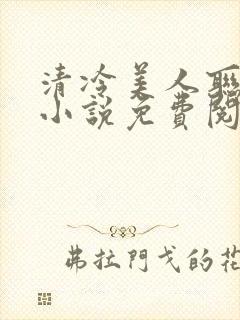 清冷美人聯
小說免費閱
弗拉門戈的花